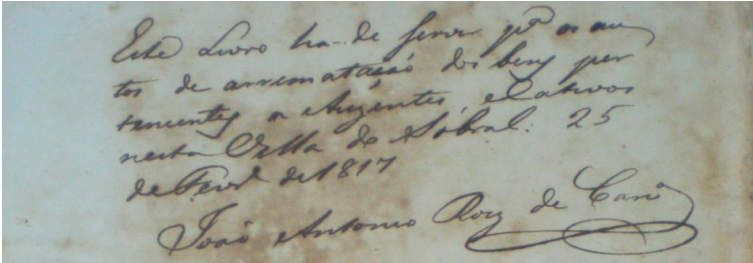 Este Livro ha de servir pª os au
tos de arrematação dos bens per
tencentes a Auzentes, e Cativos
nesta Villa do Sobral. 25
de Fevrº de 1817
João Antonio Roiz de Carvº